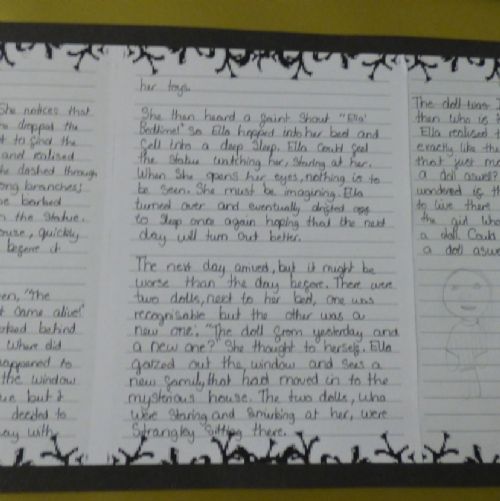 She notices that
dropped the
to find the
and realised
she dashed through
branches;
barked
the statue.
house, quickly
before it
"The
came alive!"
looked behind
Where did
happened to
the window
but it
decided to
away with
her toys.
She then heard a faint shout "Ella!
Bedtime!" So Ella hopped into her bed and
fell into a deep sleep. Ella could feel
the statue watching her, staring at her.
When she opens her eyes, nothing is to
be seen. She must be imagining. Ella
turned over and eventually drifted off
to sleep once again hoping that the next
day will turn out better.
The next day arrived, but it might be
worse than the day before. There were
two dolls, next to her bed, one was
recognisable but the other was a
new one. "The doll from yesterday and
a new one?" She thought to herself. Ella
gazed out the window and sees a
new family, that had moved in to the
mysterious house. The two dolls, who
were staring and smirking at her, were
strangley sitting there.
The doll was
then who is
Ella realised
exactly like the
that just mo
a doll aswell?
wondered is th
to live there
the girl who
a doll Could
a doll aswe